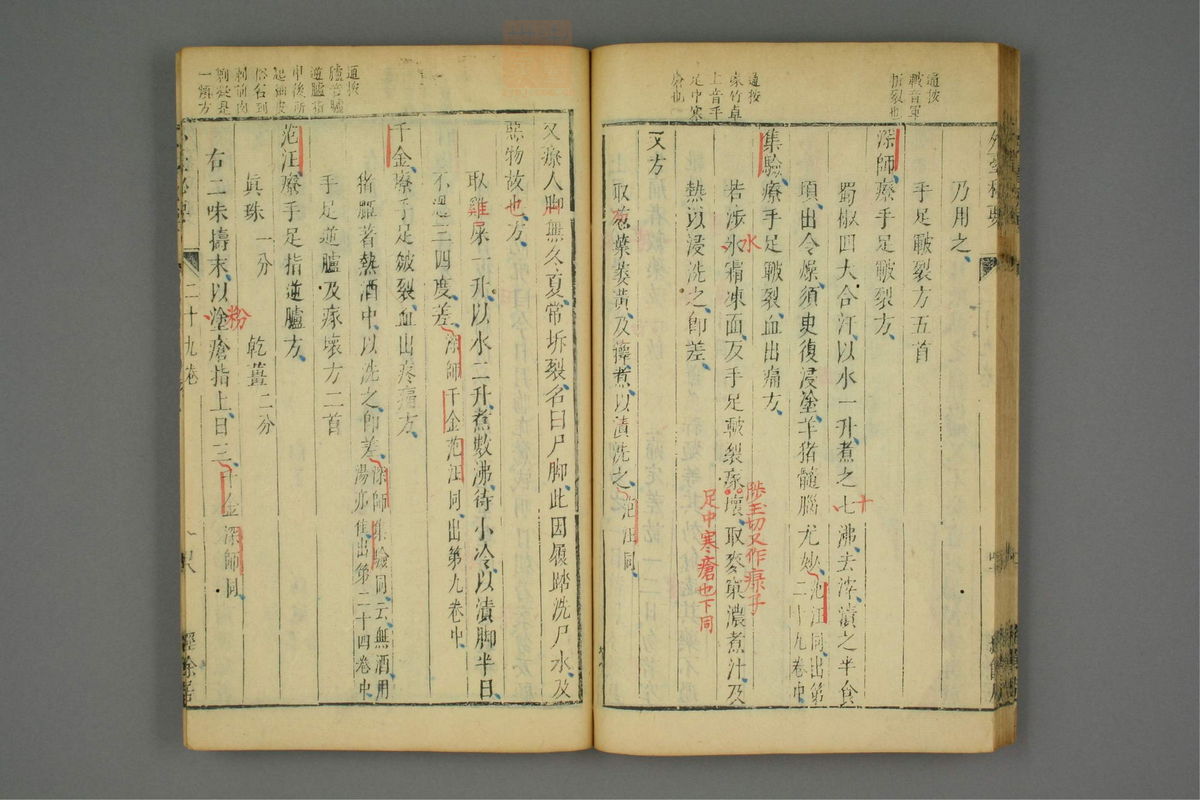 乃用之
手足皸裂方五首
深師療手足皸裂方
蜀椒四大合汗以水一升煮之七沸去滓漬之半食
十
頃出令燥須臾復浸塗羊猪髓腦尤妙范汪同出第二十九卷中
集驗療手足皸裂血出痛方
若涉水霜凍面及手足皸裂瘃壞取麥窠濃煮汁及
水
陟玉切又作瘃子
足中寒瘡也下同
熱以浸洗之卽差
又方
取葱葉萎黃及擇煮以漬洗之范汪同
通按
皸音軍
坼裂也
通按
瘃竹卓
上音平
足中寒
瘡也
又療人脚無冬夏常坼裂名曰尸脚此因履踏洗尸水及
惡物故也方
取雞屎一升以水二升煮數沸待小冷以漬脚半日
不過三四度差深師千金范汪同出第九卷中
千金療手足皴裂血出疼痛方
猪胵著熱酒中以洗之卽差深師集驗同云無酒用湯亦佳出第二十四卷中
手足逆臚及瘃壞方二首
范汪療手足指逆臚方
眞珠一分 乾薑二分
右二味擣末以塗瘡指上日三千金深師同
粉
二十九卷
四八
經餘居
通按
臚音驢
逆臚指
甲後所
起細皮
俗名到
一類方